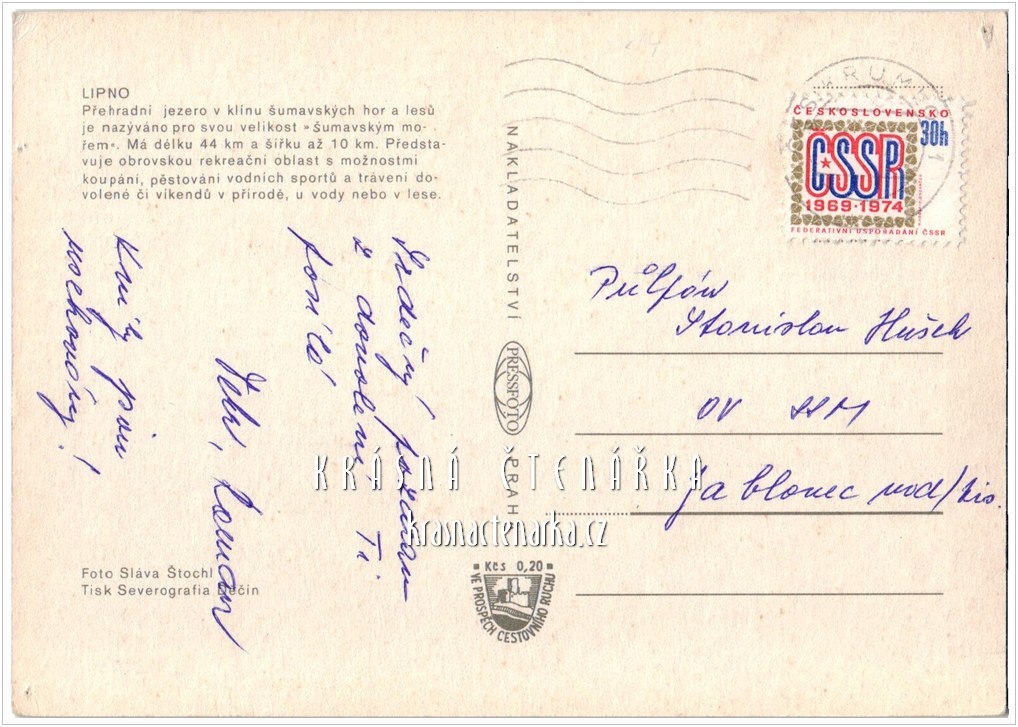 LIPNO
Přehradní jezero v klínu šumavských hor a lesů
je nazýváno pro svou velikost »šumavským mo-
řem«. Má délku 44 km a šířku až 10 km. Předsta-
vuje obrovskou rekreační oblast s možnostmi
koupání, pěstování vodních sportů a trávení do-
volené či víkendů v přírodě, u vody nebo v lese.
Srdečný pozdrav
z dovolené Ti
posílá
Roman
Foto Sláva Štochl
Tisk Severografia Děčín
NAKLADATELSTVÍ
PRESSFOTO
PRAHA
Kčs 0,20
VE PROSPĚCH CESTOVNÍHO RUCHU
KRUMLOV
1
ČESKOSLOVENSKO
30h
ČSSR
1969·1974
FEDERATIVNÍ USPOŘÁDÁNÍ ČSSR
Stanislav Hušek
OV SSM
Jablonec nad/Nis.
KRÁSNÁ ČTENÁŘKA
krasnactenarka.cz